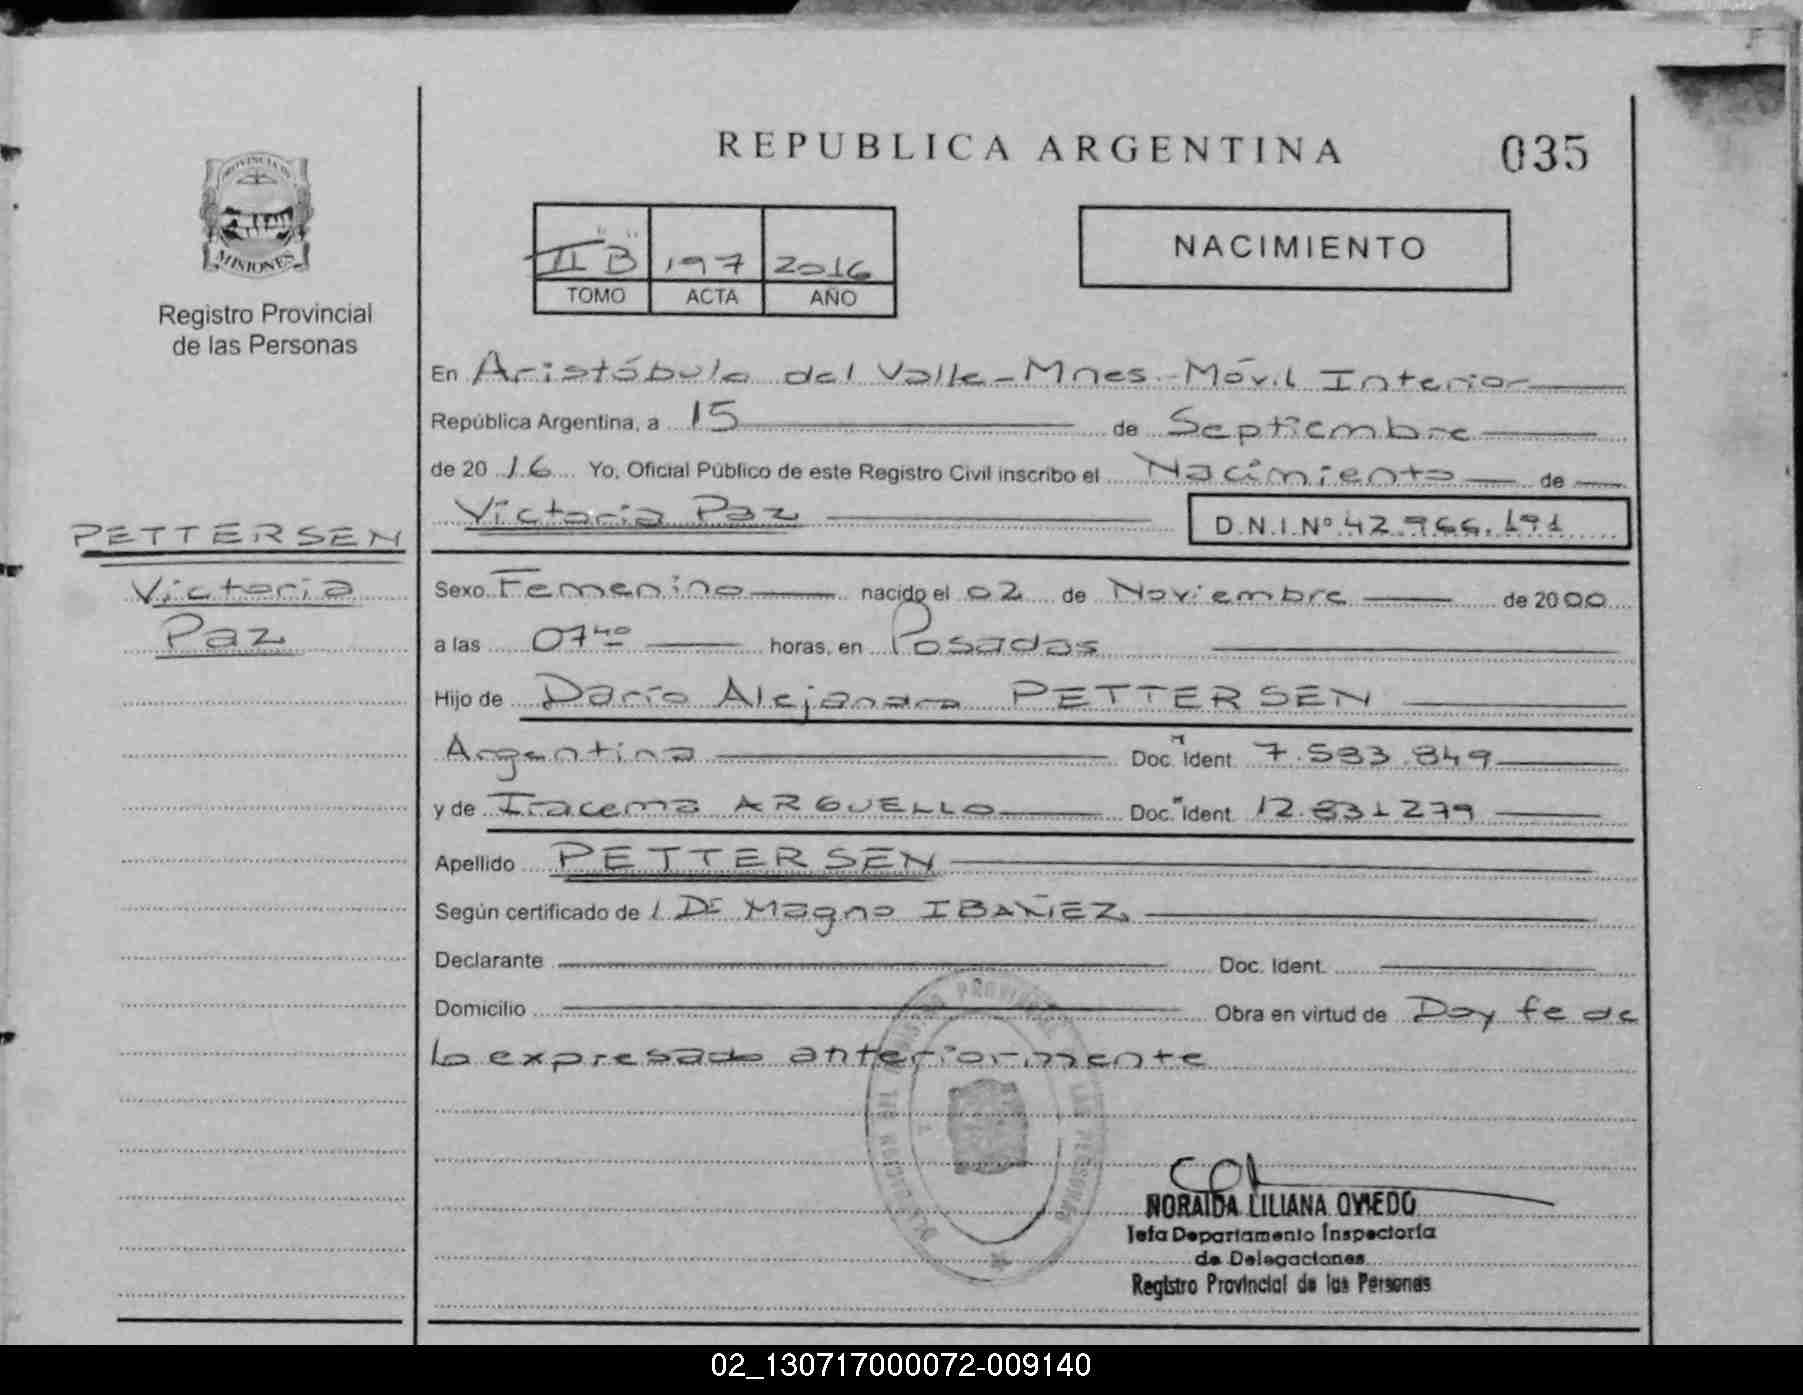 REPUBLICA ARGENTINA
035
PROVINCIA DE
MISIONES
Registro Provincial
de las Personas
II "B" 197 2016
TOMO ACTA AÑO
NACIMIENTO
En Aristóbulo del Valle - Mnes - Móvil Interior
República Argentina, a 15 de Septiembre
de 2016 Yo, Oficial Público de este Registro Civil inscribo el Nacimiento de
Victoria Paz D.N.I.Nº 42.966.191
PETTERSEN
Victoria
Paz
Sexo Femenino nacido el 02 de Noviembre de 2000
a las 07 40 horas, en Posadas
Hijo de Darío Alejandro PETTERSEN
Argentina Doc. Ident. 7.593.849
y de Iracema ARGUELLO Doc. Ident. 12.831279
Apellido PETTERSEN
Según certificado de / Dr Magno IBAÑEZ
Declarante Doc. Ident.
Domicilio Obra en virtud de Doy fe de
lo expresado anteriormente
NORAIDA LILIANA OVIEDO
Jefa Departamento Inspectoría
de Delegaciones
Registro Provincial de las Personas
02_130717000072-009140